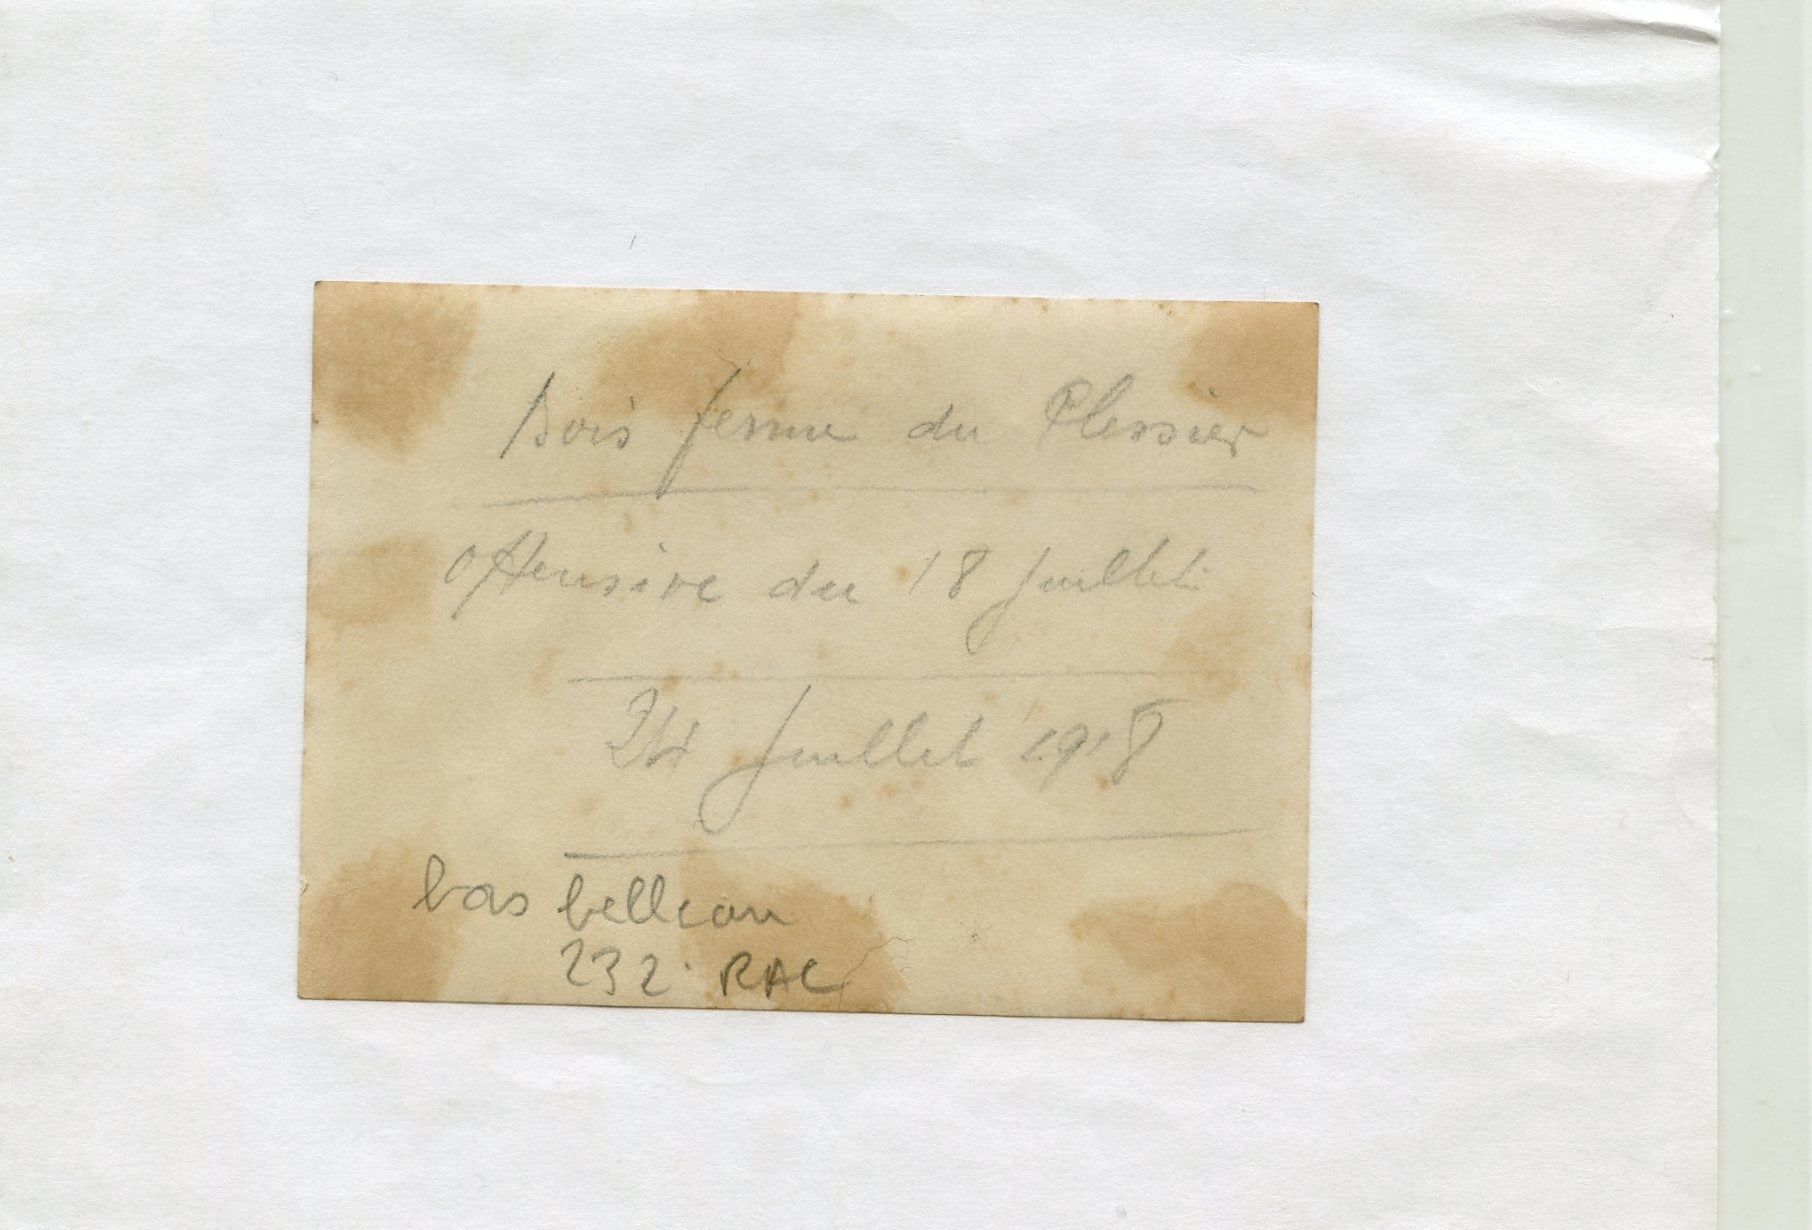 Bois ferme du Plessier
offensive du 18 Juillet
24 Juillet 1918
bas belleau
232 RAC